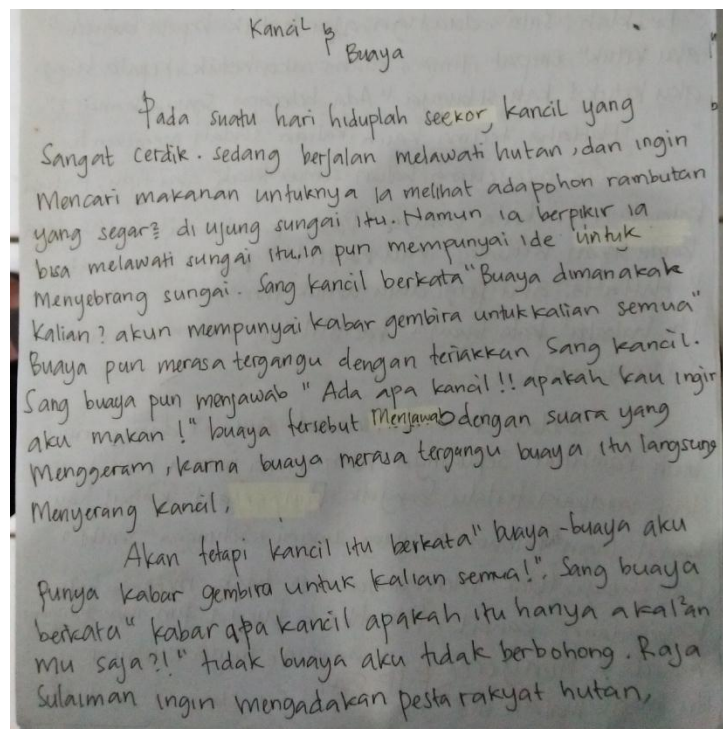 Kancil &
Buaya
Pada suatu hari hiduplah seekor kancil yang
Sangat cerdik. sedang berjalan melawati hutan, dan ingin
Mencari makanan untuknya ia melihat ada pohon rambutan
yang segar2 di ujung sungai itu. Namun ia berpikir ia
bisa melawati sungai itu, ia pun mempunyai ide untuk
Menyebrang sungai. Sang kancil berkata "Buaya dimanakak
Kalian? akun mempunyai kabar gembira untuk kalian semua"
Buaya pun merasa tergangu dengan teriakkan Sang kancil.
Sang buaya pun menjawab "Ada apa kancil!! apakah kau ingin
aku makan!" buaya tersebut Menjawab dengan suara yang
Menggeram, karna buaya merasa tergangu buaya itu langsung
Menyerang kancil,
Akan tetapi kancil itu berkata "buaya-buaya aku
Punya kabar gembira untuk kalian semua!". Sang buaya
berkata "kabar apa kancil apakah itu hanya akal2an
mu saja?!" tidak buaya aku tidak berbohong. Raja
Sulaiman ingin mengadakan pesta rakyat hutan,